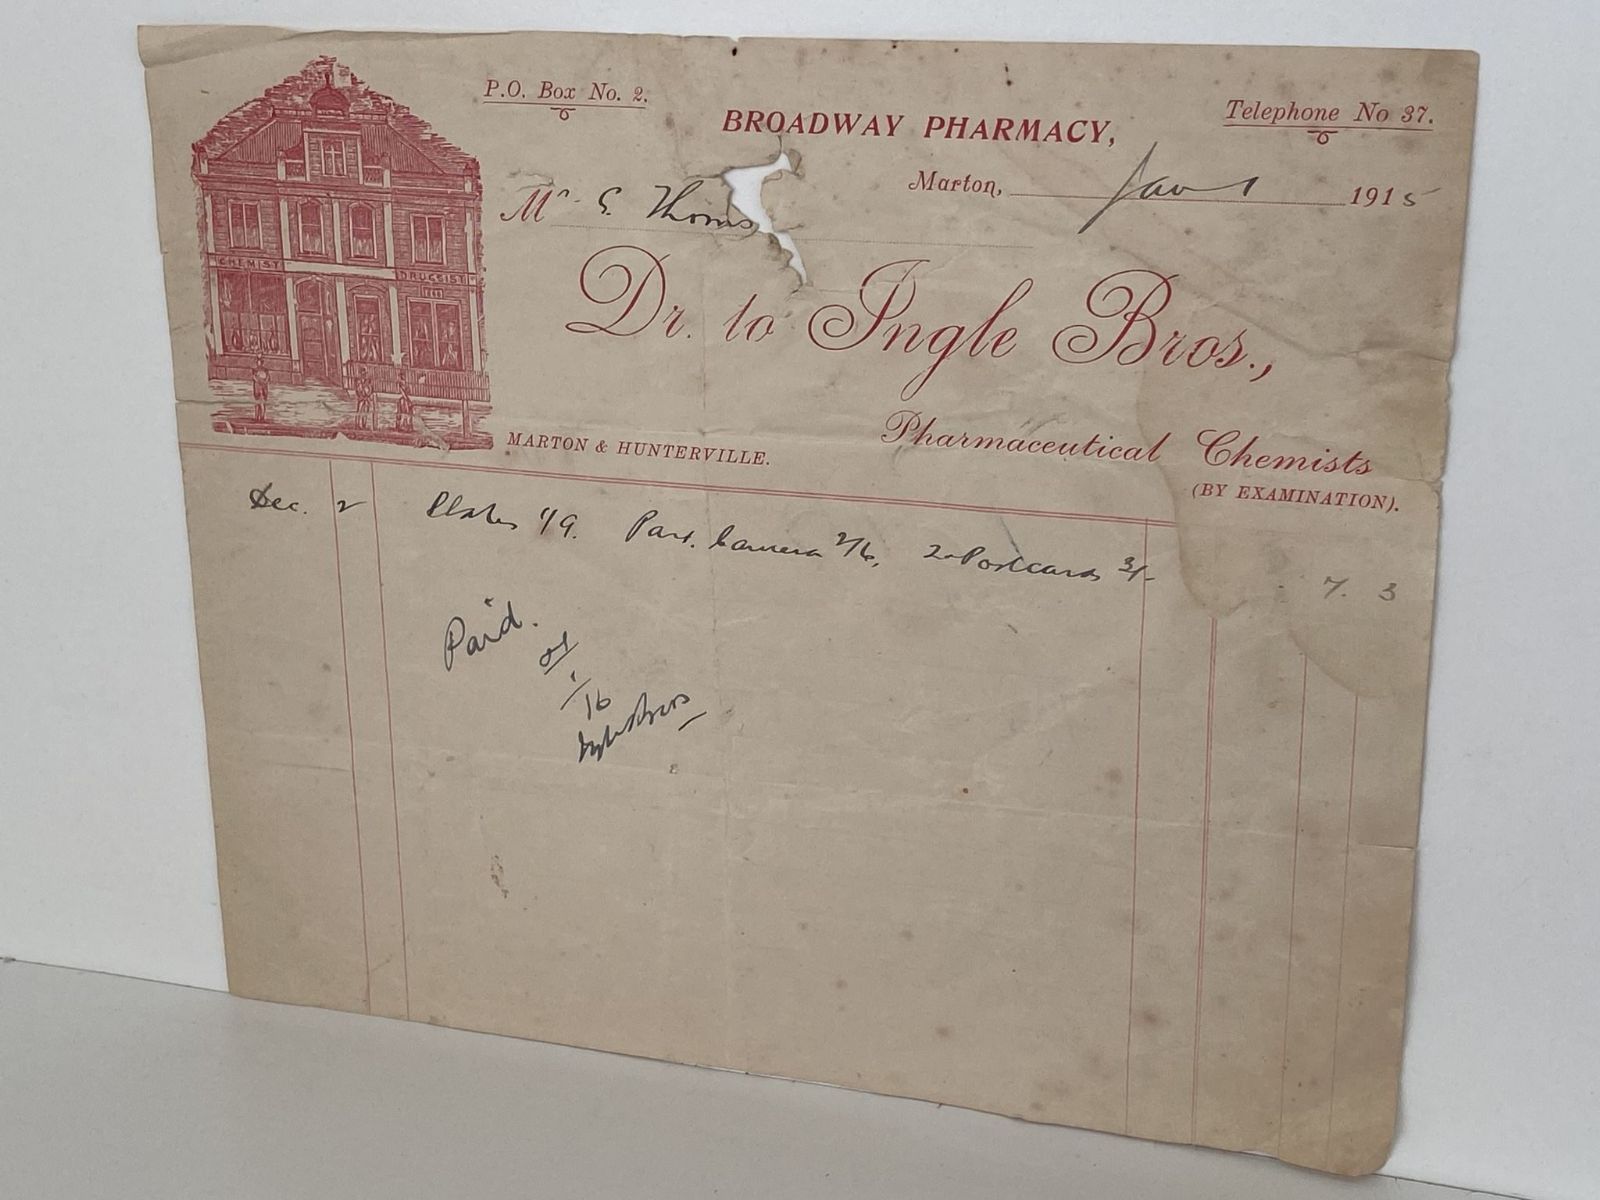 P.O. Box No. 2.
BROADWAY PHARMACY,
Telephone No 37.
Marton, Jan 1 1915
Mr G. Thoms
CHEMIST DRUGGIST
Dr. to Ingle Bros.,
MARTON & HUNTERVILLE.
Pharmaceutical Chemists
(BY EXAMINATION).
Dec. 2 Plates 1/9. Part. Camera 2/6, 2 Postcards 3/- 7. 3
Paid.
Ingle Bros